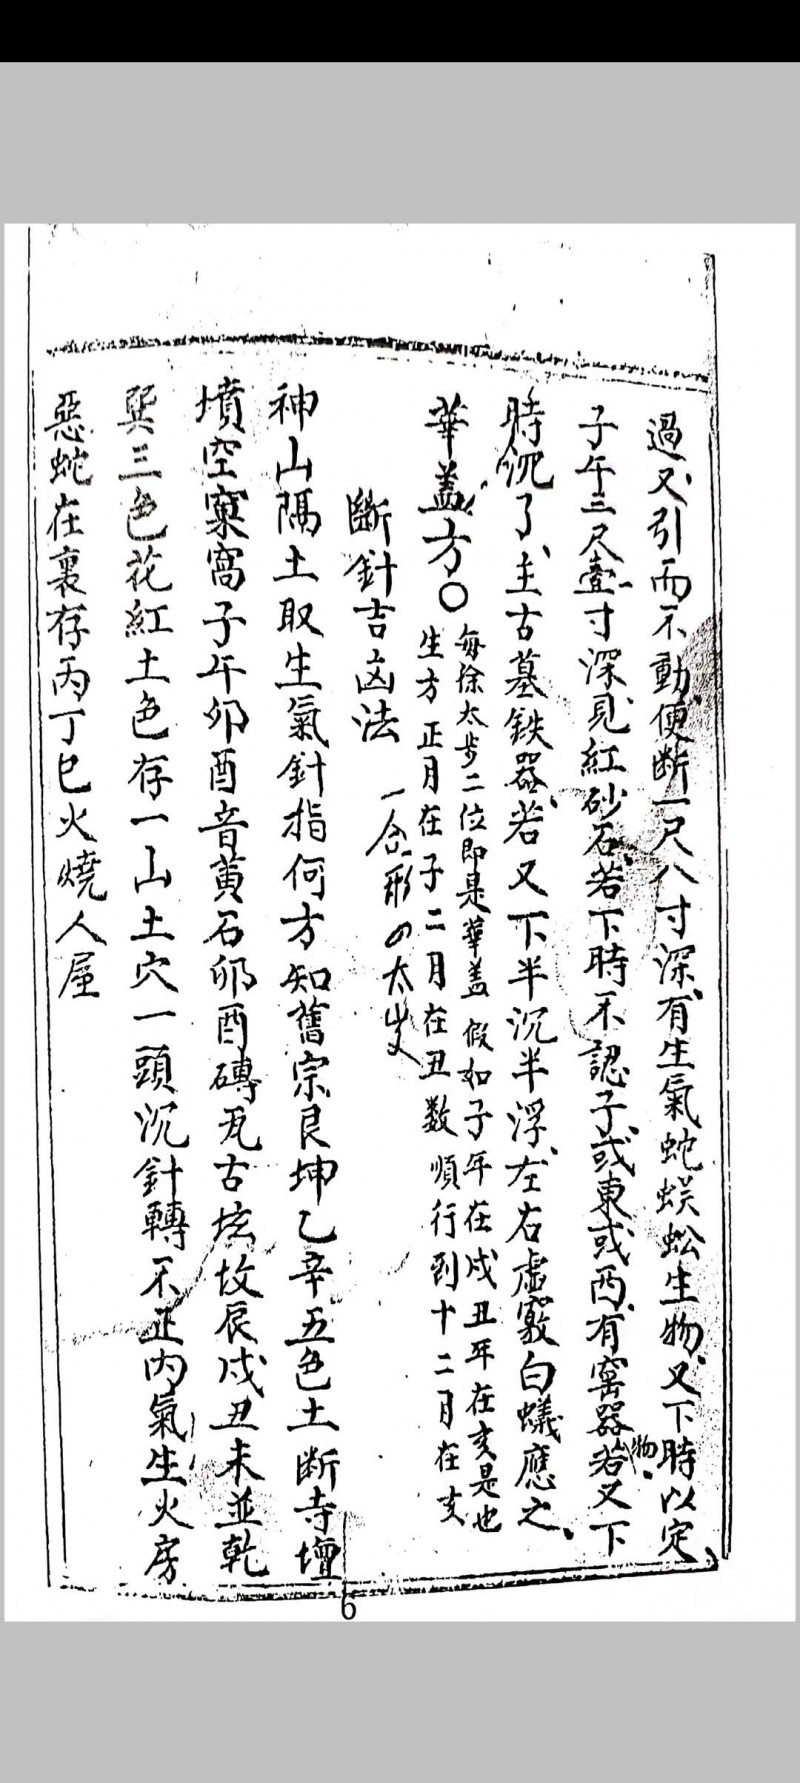 過又引而不動便断一尺八寸深有生氣蛇蜈蚣生物又下時以定
子午三尺壹寸深見紅砂石若下時不認子或東或西有窑器物若又下
時沉了主古墓鉄器若又下半沉半浮左右虛竅白蟻應之
華盖方〇
每徐太歩二位即是華盖假如子年在戍丑年在亥是也
生方正月在子二月在丑数順行到十二月在亥
斷針吉凶法
神山隅土取生氣針指何方知舊宗艮坤乙辛五色土断寺壇
墳空窠窩子午卯酉音黄石卯酉磚瓦古坟辰戍丑未並乾
巽三色花紅土色存一山土穴一頭沉針轉不正内氣生火房
惡蛇在裏存丙丁巳火燒人屋
6